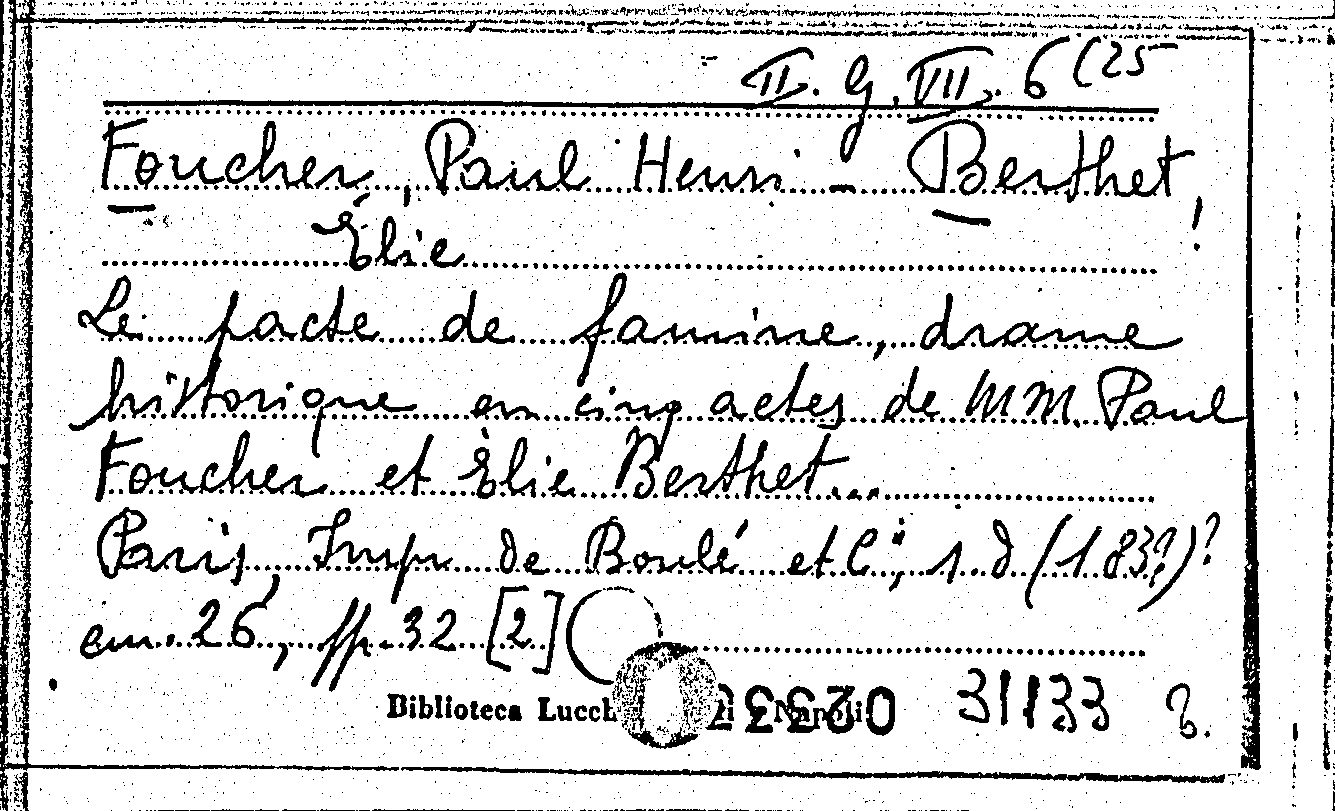 II. G. VII. 6 (25
Foucher, Paul Henri - Berthet,
Élie
Le pacte de famine, drame
historique en cinq actes de MM. Paul
Foucher et Élie Berthet...
Paris, Imp. de Boulé et C.ie, s. d (183?)?
cm. 26, pp. 32 [2]
Biblioteca Lucch i Napoli 31133